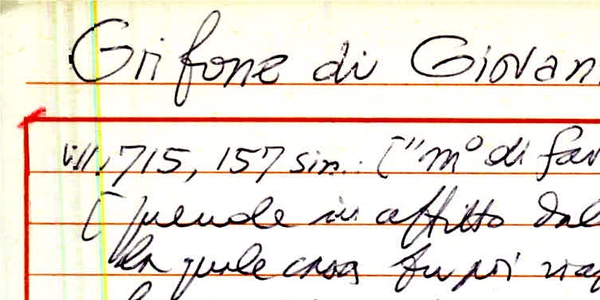 Grifone di Giovan
VII, 715, 157 sin.: ["m° di far
[prende in affitto dal
la quale casa fu poi